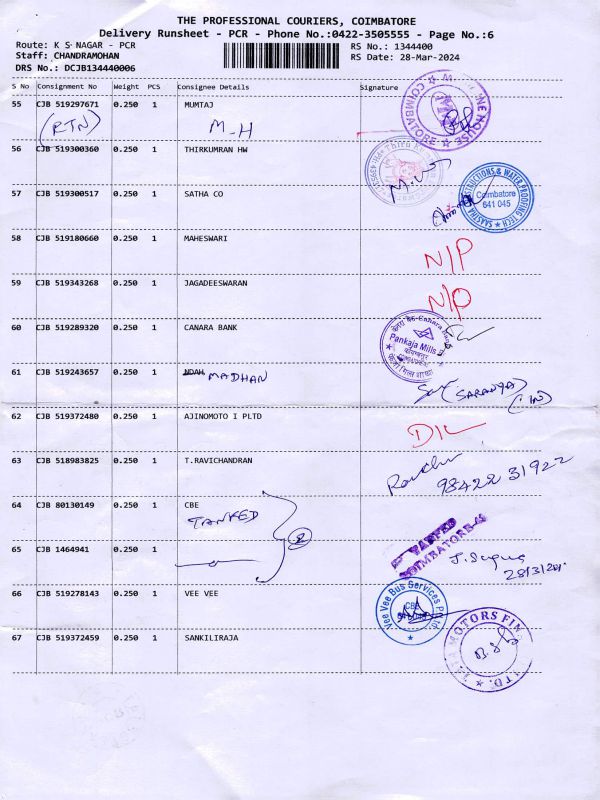 THE PROFESSIONAL COURIERS, COIMBATORE
Delivery Runsheet - PCR - Phone No.:0422-3505555 - Page No.:6
Route: K S NAGAR - PCR
RS No.: 1344400
Staff: CHANDRAMOHAN
RS Date: 28-Mar-2024
DRS No.: DCJB134440006
S No Consignment No Weight PCS Consignee Details Signature
55 CJB 519297671 0.250 1 MUMTAJ
(RTN) M-H
COIMBATORE
56 CJB 519300360 0.250 1 THIRKUMRAN HW
57 CJB 519300517 0.250 1 SATHA CO
Coimbatore
641 045
58 CJB 519180660 0.250 1 MAHESWARI
N/P
59 CJB 519343268 0.250 1 JAGADEESWARAN
N/P
60 CJB 519289320 0.250 1 CANARA BANK
Pankaja Mills
61 CJB 519243657 0.250 1 MADHAN
(SARANYA)
62 CJB 519372480 0.250 1 AJINOMOTO I PLTD
D/L
63 CJB 518983825 0.250 1 T.RAVICHANDRAN
98422 31922
64 CJB 80130149 0.250 1 CBE
TANFED
2
TANFED
COIMBATORE
65 CJB 1464941 0.250 1
28/3/24
66 CJB 519278143 0.250 1 VEE VEE
Vee Vee Bus Services P Ltd.
CBE
67 CJB 519372459 0.250 1 SANKILIRAJA
MOTORS FIN
LTD.